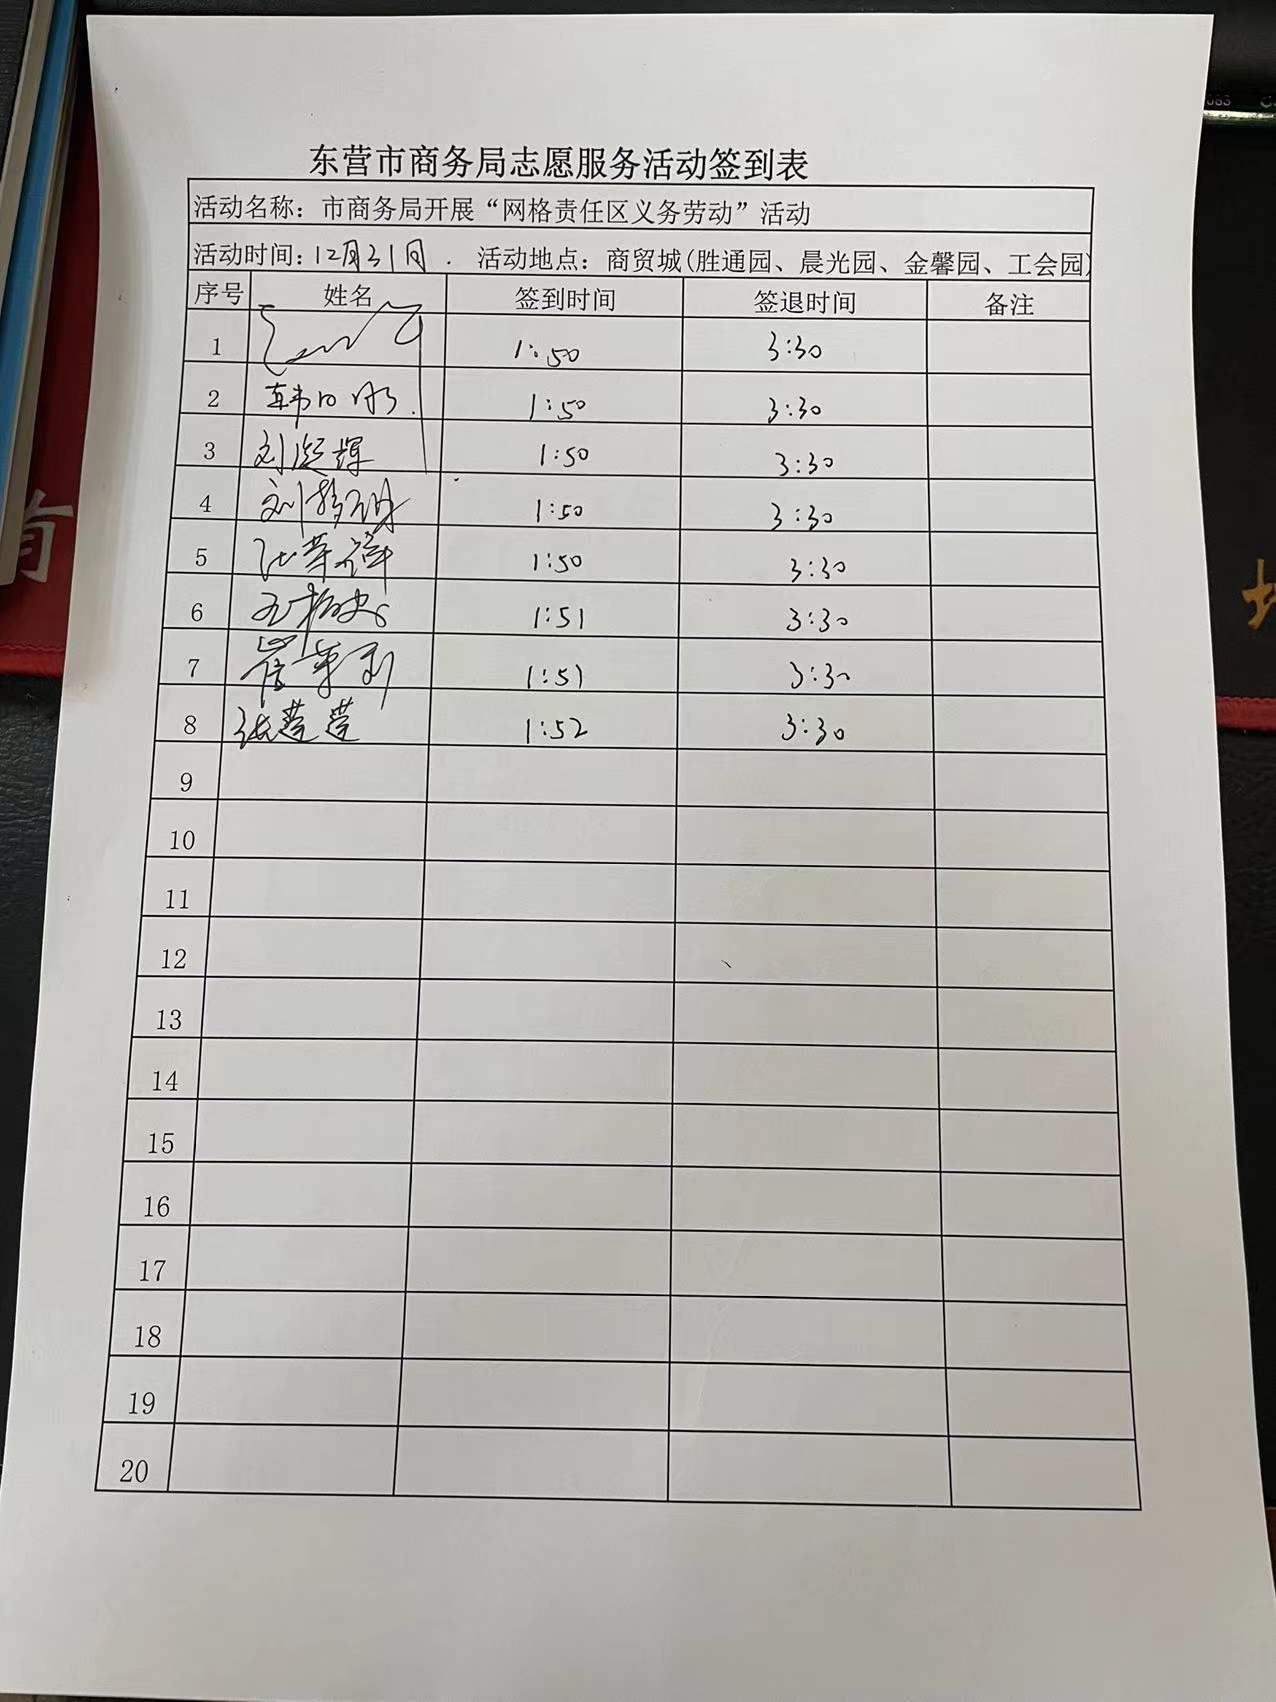 东营市商务局志愿服务活动签到表
活动名称：市商务局开展“网格责任区义务劳动”活动
活动时间：12月31日. 活动地点：商贸城(胜通园、晨光园、金馨园、工会园)
序号 姓名 签到时间 签退时间 备注
1 1:50 3:30
2 1:50 3:30
3 刘凝辉 1:50 3:30
4 刘 1:50 3:30
5 1:50 3:30
6 1:51 3:30
7 崔 1:51 3:30
8 张莹莹 1:52 3:30
9
10
11
12
13
14
15
16
17
18
19
20